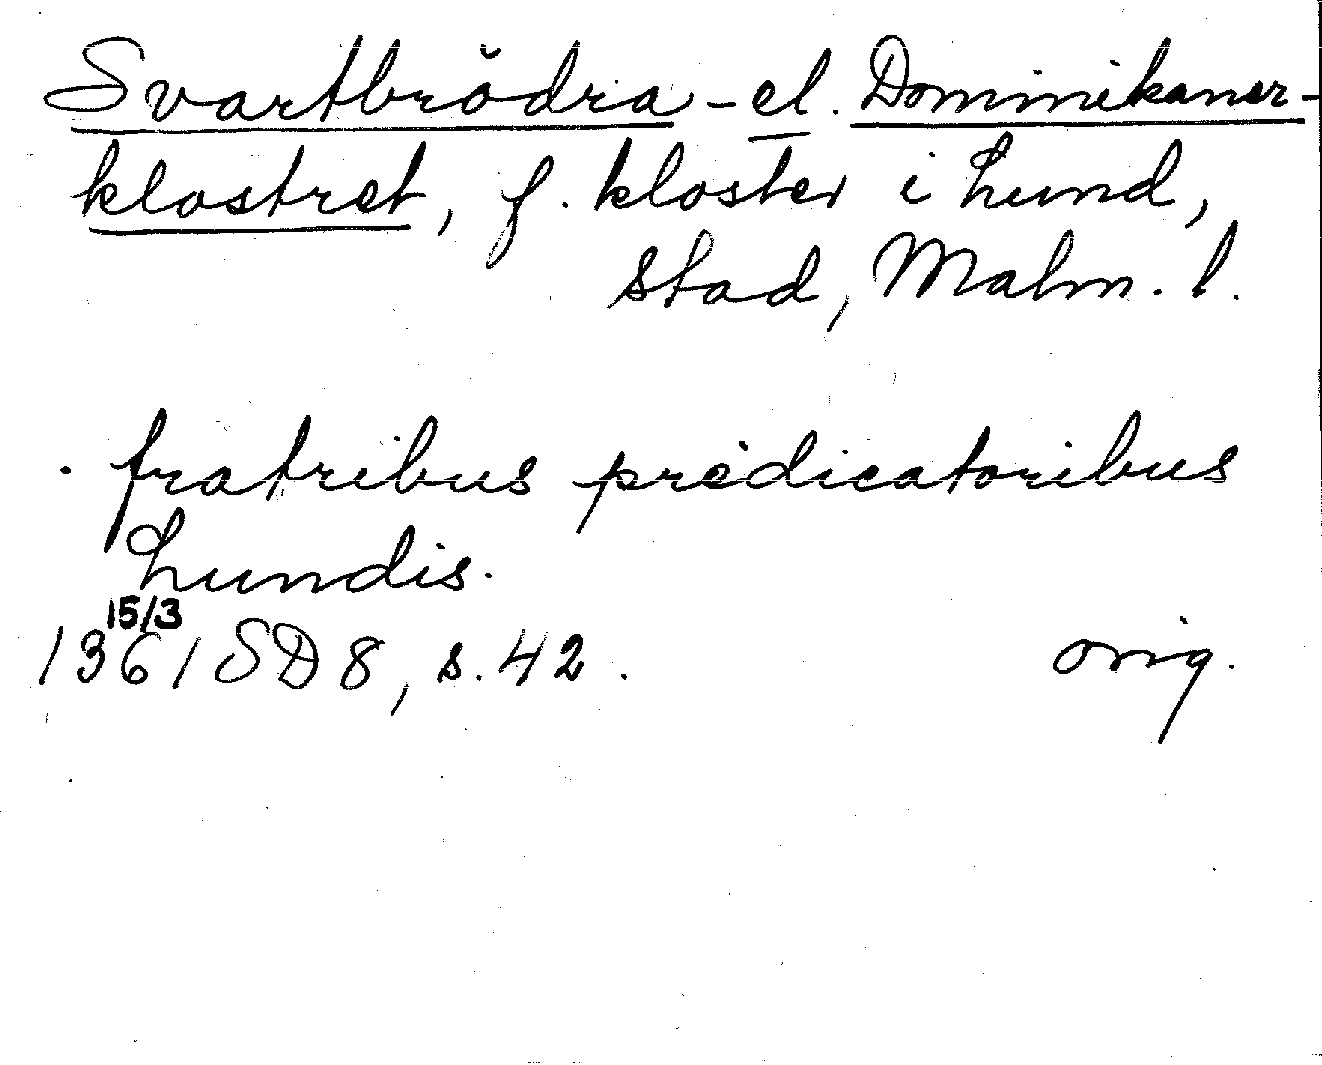 Svartbrödra- el. Dominikaner-
klostret, f. kloster i Lund,
stad, Malm. l.
fratribus predicatoribus
Lundis.
15/3
1361 SD 8, s. 42. orig.